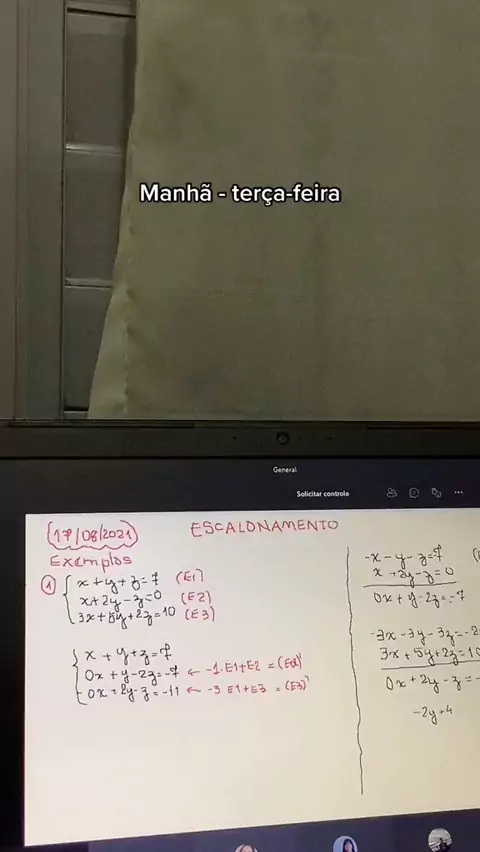 Manhã - terça-feira
General
Solicitar controle
(17/08/2021)
ESCALONAMENTO
Exemplos
1
x + y + z = 7 (E1)
x + 2y - z = 0 (E2)
3x + 5y + 2z = 10 (E3)
x + y + z = 7
0x + y - 2z = -7 ← -1·E1+E2 = (E2)'
0x + 2y - z = -11 ← -3 E1+E3 = (E3)'
-x - y - z = 7
x + 2y - z = 0
0x + y - 2z = -7
-3x - 3y - 3z = -2
3x + 5y + 2z = 10
0x + 2y - z = -
-2y + 4